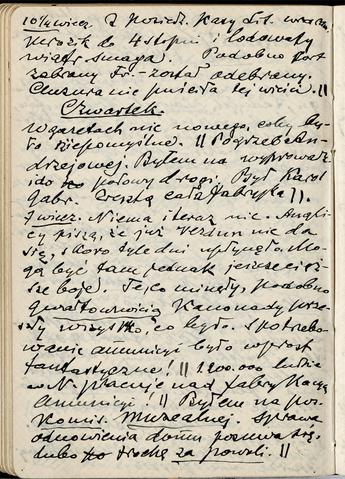 10½ wiecz. Z posiedz. Kasy Lit. wracam.
Mrozik do 4 stopni i lodowaty
wiatr smaga. Podobno fort
zabrany fr. został odebrany.
Cenzura nie puściła tej wieści. ||
Czwartek.
W gazetach nic nowego, coby by-
ło niepomyślne. || Pogrzeb An-
drzejowej. Byłem na wyprowadz.
i do połowy drogi. Był Karol
Gabr. Zresztą cała fabryka ||.
7 wiecz. Niema i teraz nic. Angli-
cy piszą, że już Verdun nie da
się, skoro tyle dni upłynęło. Mo-
gą być tam jednak jeszcze cięż-
sze boje. Te, co minęły, podobno
gwałtownością kanonady prze-
szły wszystko, co było. Spotrzebo-
wanie amunicyi było wprost
fantastyczne! || 1200.000 ludzi
w N. pracuje nad fabrykacyą
amunicyi! || Byłem na pos.
Komis. Muzealnej. Sprawa
odnowienia domu posuwa się,
lubo trochę za powoli. ||